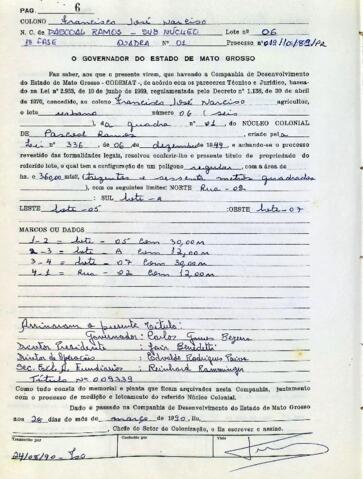 PAG. 6
COLONO Francisco José Narciso
N. C. de PASCOAL RAMOS - SUB NUCLEO Lote nº 06
1ª FASE QUADRA Nº 01 Processo nº
O GOVERNADOR DO ESTADO DE MATO GROSSO
Faz saber, aos que o presente virem, que havendo a Companhia de Desenvolvimento
do Estado de Mato Grosso - CODEMAT -, de acordo com os pareceres Técnico e Jurídico, basea-
do na Lei nº 2.935, de 10 de junho de 1969, regulamentada pelo Decreto nº 1.138, de 30 de abril
de 1970, concedido, ao colono Francisco José Narciso agricultor,
o lote urbano número 06 (seis
), da quadra nº 01, do NÚCLEO COLONIAL
DE Pascoal Ramos, criado pela
Lei nº 336, de 06 de dezembro 1949, e achando-se o processo
revestido das formalidades legais, resolveu conferir-lhe o presente título de propriedade do
referido lote, o qual tem a configuração de um polígono regular, com a área de
hs. e 360,00 m² (trezentos e sessenta metros quadrados
), com os seguintes limites: NORTE Rua - 02
: SUL Lote - A
LESTE Lote - 05 :OESTE Lote - 07
MARCOS OU DADOS
1 - 2 = Lote - 05 com 30,00 m
2 - 3 = Lote - A com 12,00 m
3 - 4 = Lote - 07 com 30,00 m
4 - 1 = Rua - 02 com 12,00 m
Assinaram o presente título:
Governador: Carlos Gomes Bezerra
Diretor Presidente : Jair Benedetti
Diretor de Operação : Edvaldo Rodrigues Paiva
Sec. Fundiários : Reinhard Ramminger
Título Nº 009339
Como tudo consta do memorial e planta que ficam arquivados nesta Companhia, juntamente
com o processo de medição e loteamento do referido Núcleo Colonial.
Dado e passado na Companhia de Desenvolvimento do Estado de Mato Grosso
aos 28 dias do mês de março de 1990. Eu,
, Chefe do Setor de Colonização, o fiz escrever e assino.
Conferido por
Visto
24/08/90